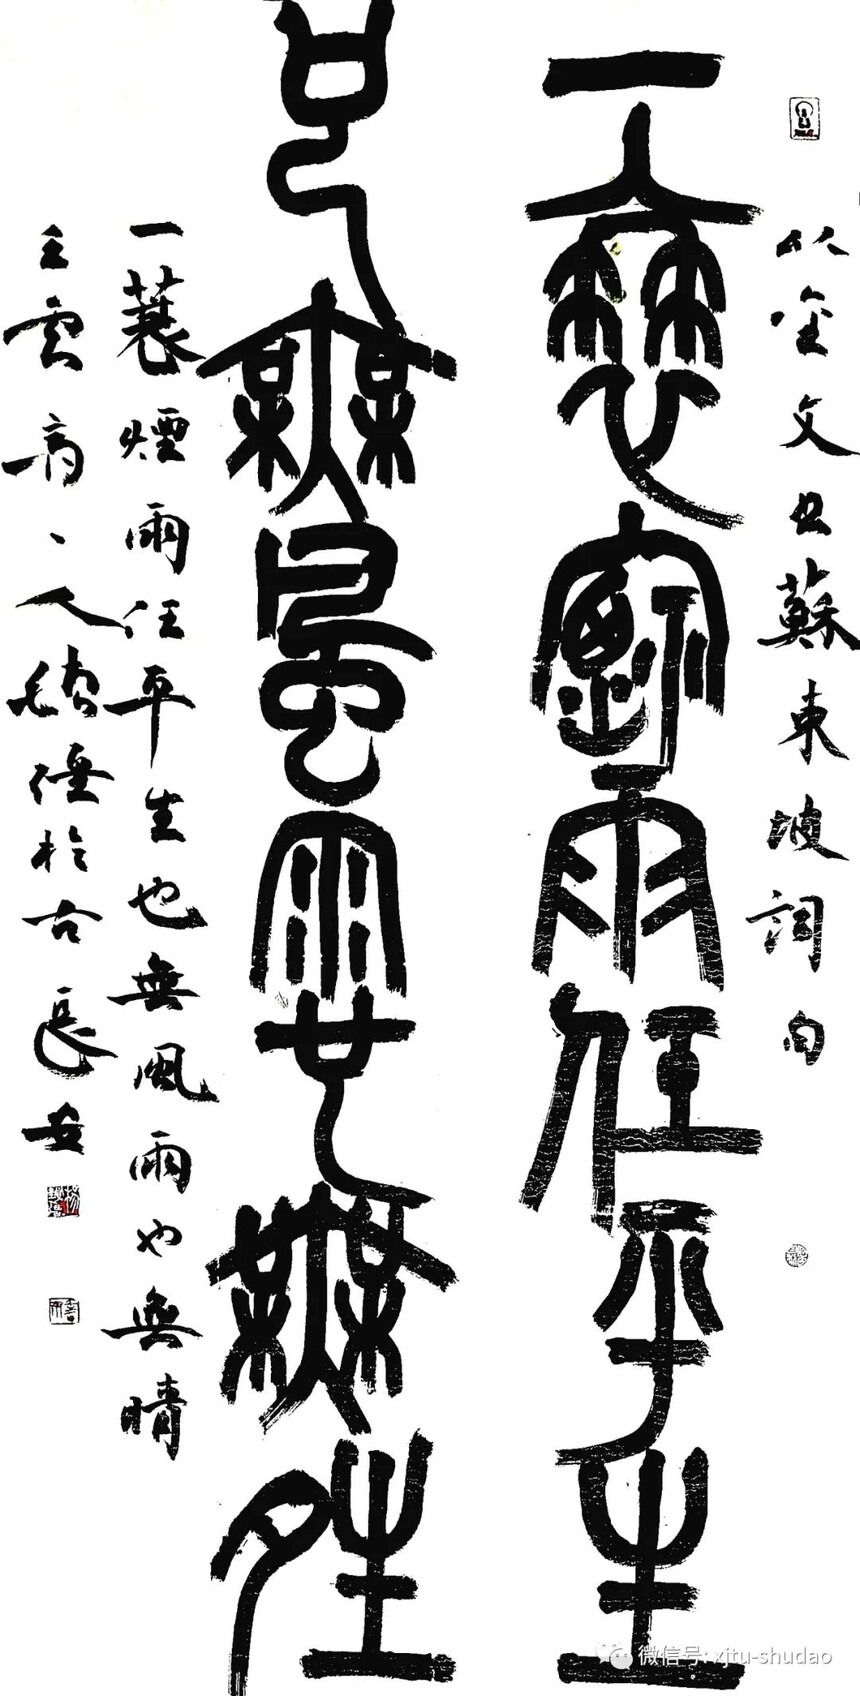 以金文书蘇東坡詞句
一蓑煙雨任平生
也無風雨也無晴
一蓑煙雨任平生也無風雨也無晴
人 於古長安
微信号: xjtu-shudao